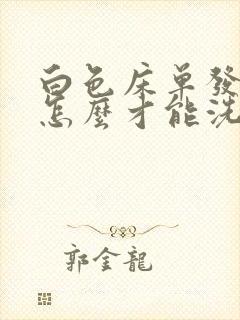 白色床单發
怎麼才能洗
郭金龍